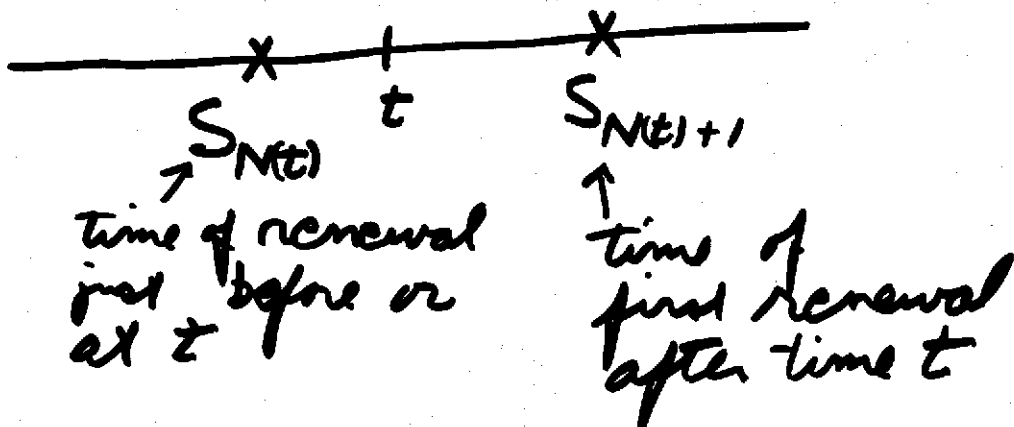 t
S_{N(t)}
S_{N(t)+1}
time of renewal
just before or
at t
time of
first renewal
after time t